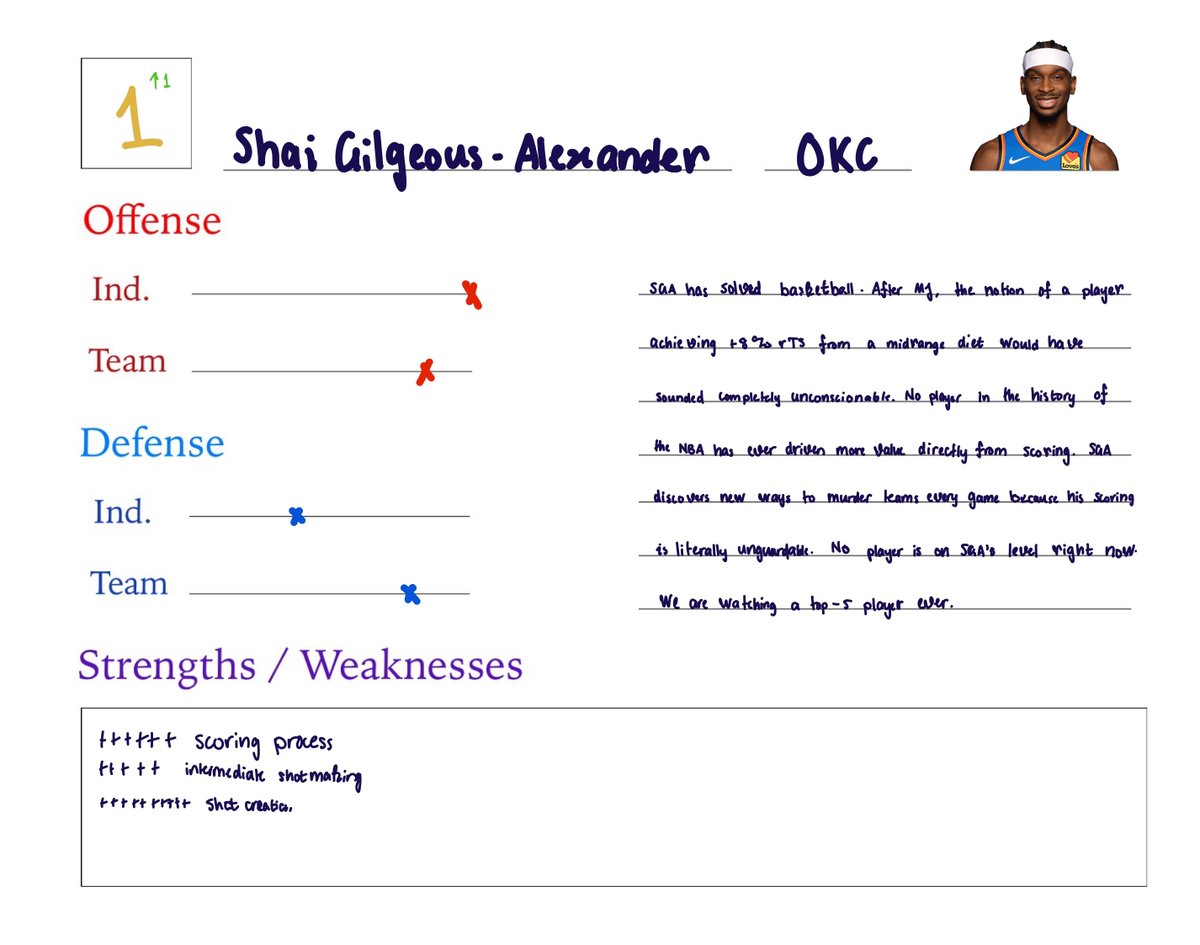 1 ↑1
Shai Gilgeous-Alexander OKC
Offense
Ind.
Team
Defense
Ind.
Team
SGA has solved basketball. After MJ, the notion of a player
achieving +8% rTS from a midrange diet would have
sounded completely unconscionable. No player in the history of
the NBA has ever driven more value directly from scoring. SGA
discovers new ways to murder teams every game because his scoring
is literally unguardable. No player is on SGA's level right now.
We are watching a top-5 player ever.
Strengths / Weaknesses
++++++ scoring process
+++++ intermediate shotmaking
++++++++++ shot creation